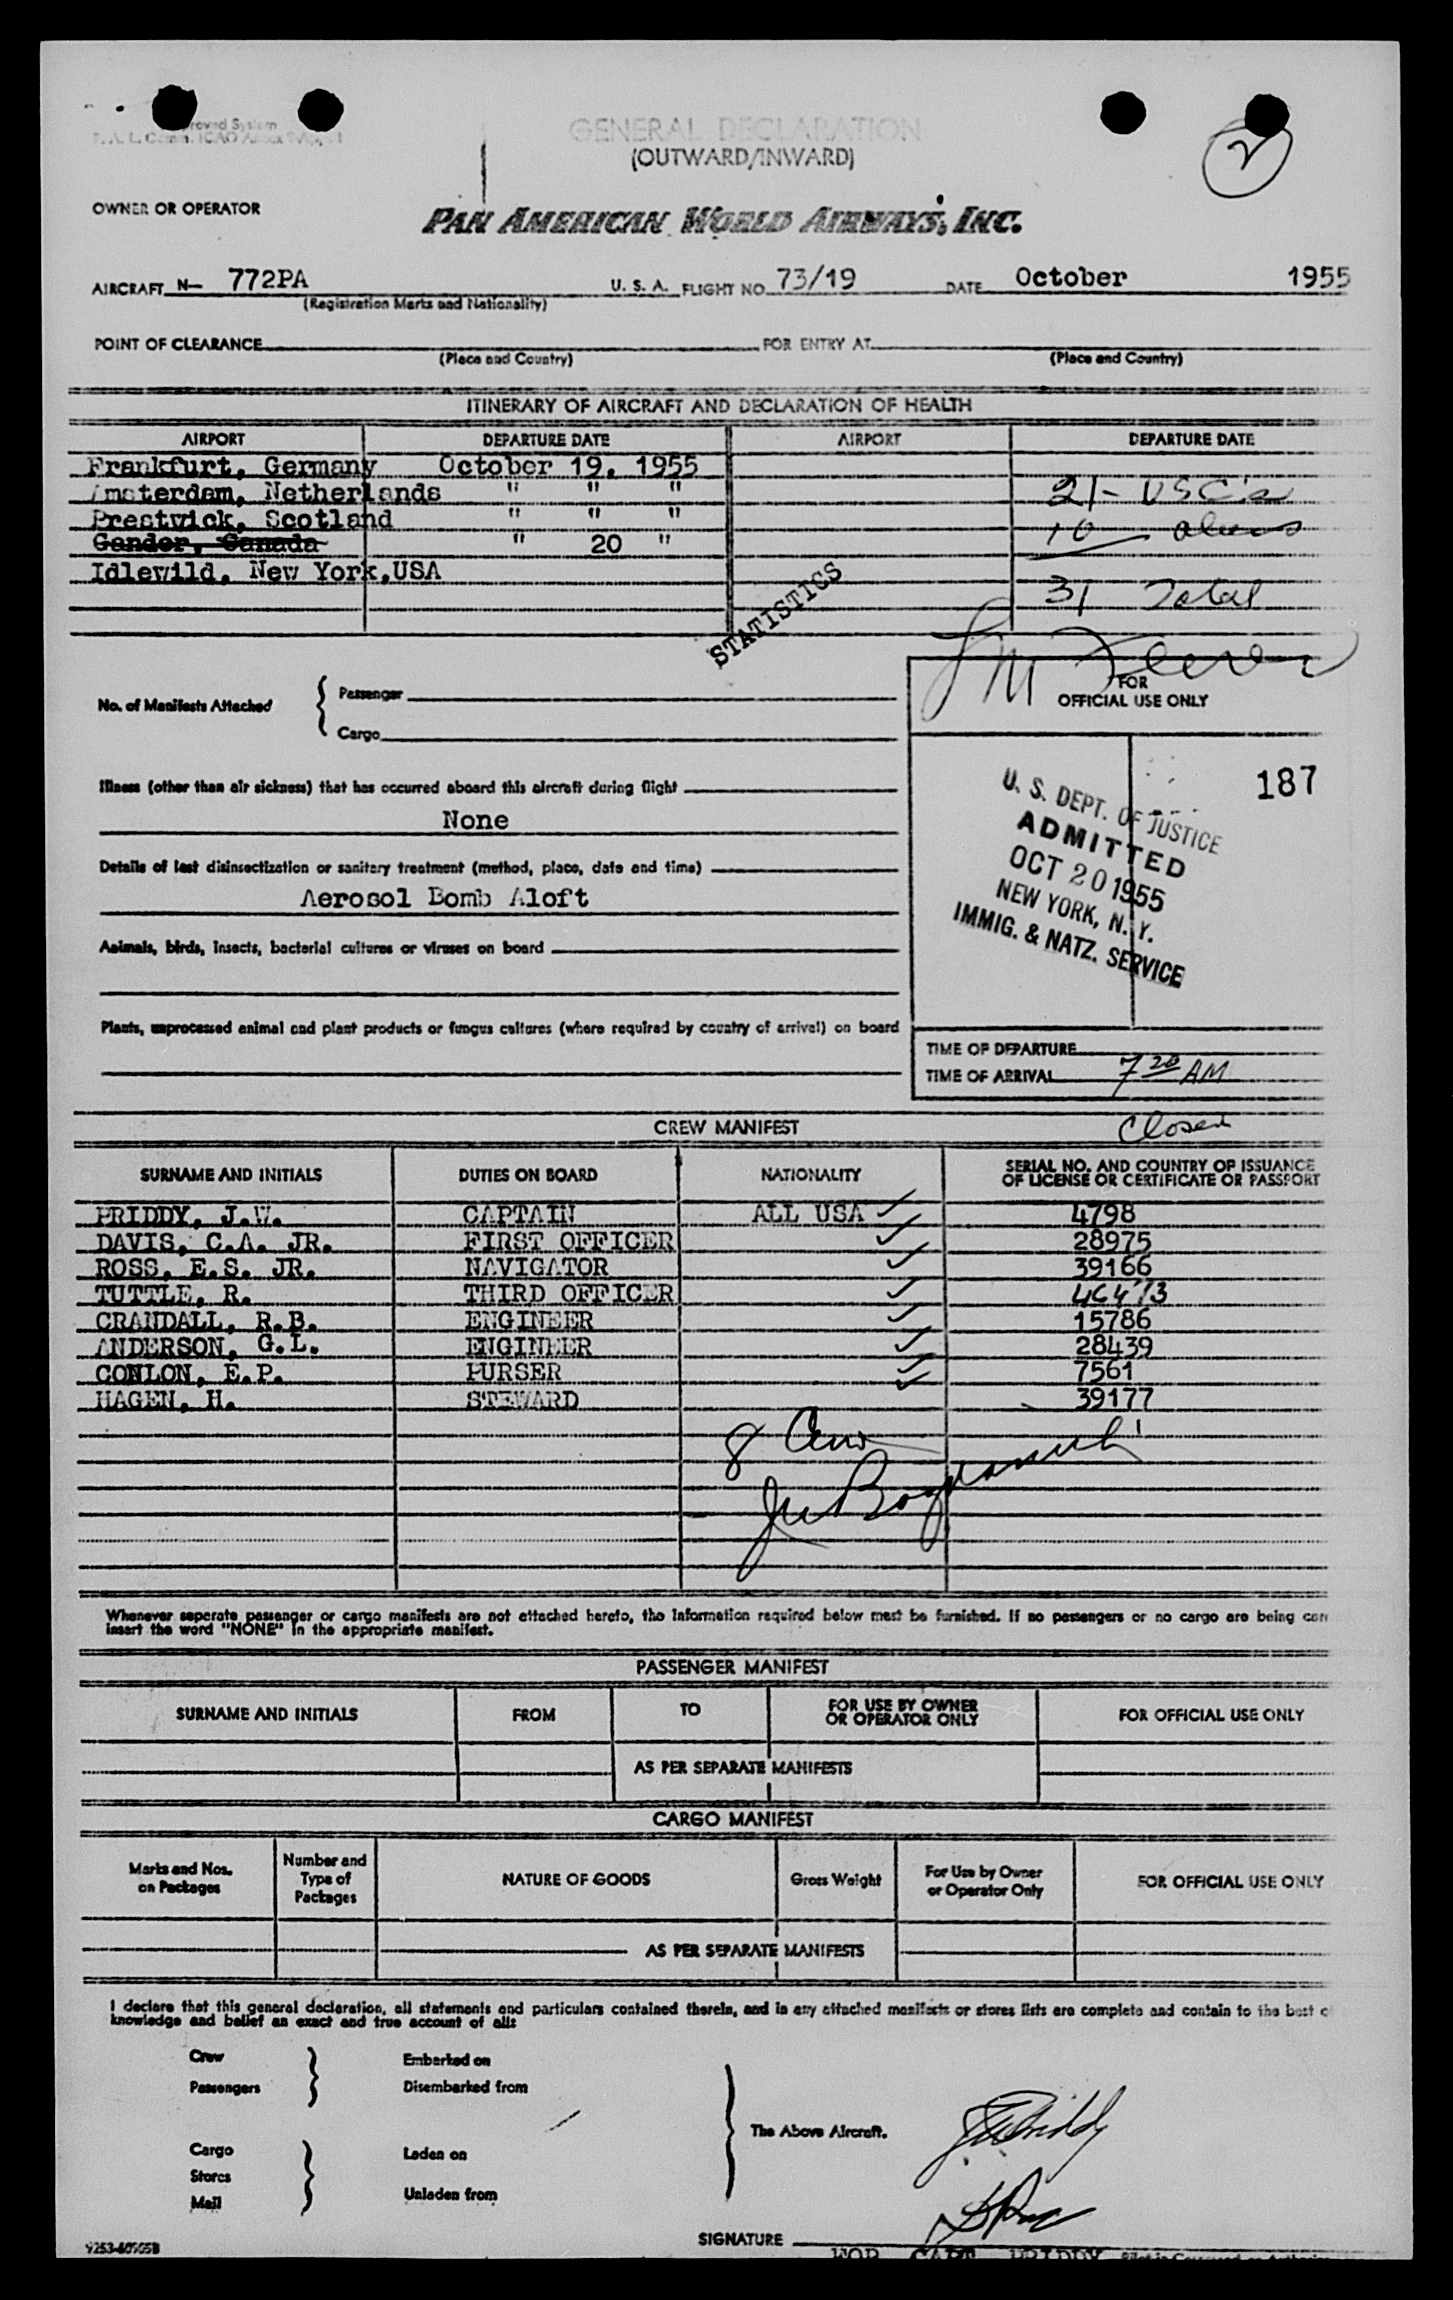 roved System
GENERAL DECLARATION
(OUTWARD/INWARD)
2
OWNER OR OPERATOR
PAN AMERICAN WORLD AIRWAYS, INC.
AIRCRAFT N— 772PA U. S. A. FLIGHT NO. 73/19 DATE October 1955
(Registration Marks and Nationality)
POINT OF CLEARANCE FOR ENTRY AT
(Place and Country) (Place and Country)
ITINERARY OF AIRCRAFT AND DECLARATION OF HEALTH
AIRPORT DEPARTURE DATE AIRPORT DEPARTURE DATE
Frankfurt, Germany October 19, 1955
Amsterdam, Netherlands " " " 21- USC's
Prestwick, Scotland " " " 10 aliens
Gander, Canada " 20 "
Idlewild, New York,USA
31 Total
STATISTICS
FOR
OFFICIAL USE ONLY
No. of Manifests Attached { Passenger
Cargo
187
Illness (other than air sickness) that has occurred aboard this aircraft during flight
None
Details of last disinsectization or sanitary treatment (method, place, date and time)
Aerosol Bomb Aloft
U. S. DEPT. OF JUSTICE
ADMITTED
OCT 20 1955
NEW YORK, N. Y.
IMMIG. & NATZ. SERVICE
Animals, birds, insects, bacterial cultures or viruses on board
Plants, unprocessed animal and plant products or fungus cultures (where required by country of arrival) on board
TIME OF DEPARTURE
TIME OF ARRIVAL 7 20 AM
CREW MANIFEST
Closed
SURNAME AND INITIALS DUTIES ON BOARD NATIONALITY SERIAL NO. AND COUNTRY OF ISSUANCE
OF LICENSE OR CERTIFICATE OR PASSPORT
PRIDDY, J.W. CAPTAIN ALL USA 4798
DAVIS, C.A. JR. FIRST OFFICER 28975
ROSS, E.S. JR. NAVIGATOR 39166
TUTTLE, R. THIRD OFFICER 46473
CRANDALL, R.B. ENGINEER 15786
ANDERSON, G.L. ENGINEER 28439
CONLON, E.P. PURSER 7561
HAGEN, H. STEWARD 39177
8 Crew
Whenever seperate passenger or cargo manifests are not attached hereto, the information required below must be furnished. If no passengers or no cargo are being
insert the word "NONE" in the appropriate manifest.
PASSENGER MANIFEST
SURNAME AND INITIALS FROM TO FOR USE BY OWNER
OR OPERATOR ONLY FOR OFFICIAL USE ONLY
AS PER SEPARATE MANIFESTS
CARGO MANIFEST
Marks and Nos.
on Packages Number and
Type of
Packages NATURE OF GOODS Gross Weight For Use by Owner
or Operator Only FOR OFFICIAL USE ONLY
AS PER SEPARATE MANIFESTS
I declare that this general declaration, all statements and particulars contained therein, and in any attached manifests or stores lists are complete and contain to the best
knowledge and belief an exact and true account of all:
Crew } Embarked on
Passengers Disembarked from
The Above Aircraft. JWPriddy
Cargo } Laden on
Stores
Mail Unladen from
SIGNATURE
FOR CAPT. PRIDDY
9253-60505B